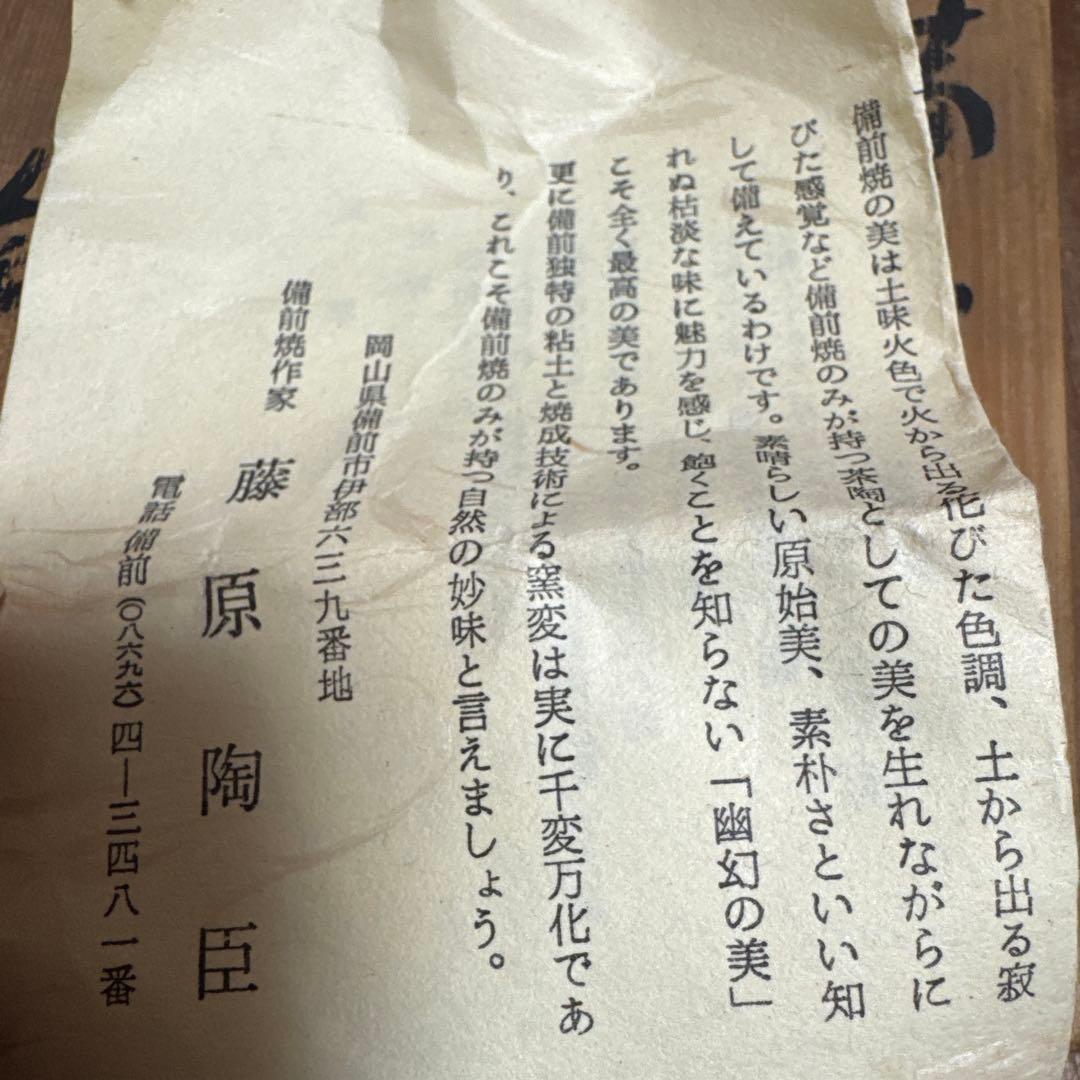 備前焼の美は土味火色で火から出る侘びた色調、土から出る寂
びた感覚など備前焼のみが持つ茶陶としての美を生れながらに
して備えているわけです。素晴らしい原始美、素朴さといい知
れぬ枯淡な味に魅力を感じ、飽くことを知らない「幽幻の美」
こそ全く最高の美であります。
更に備前独特の粘土と焼成技術による窯変は実に千変万化であ
り、これこそ備前焼のみが持つ自然の妙味と言えましょう。
岡山県備前市伊部六三九番地
備前焼作家 藤原陶臣
電話備前(〇八六九六)四―三四八一番